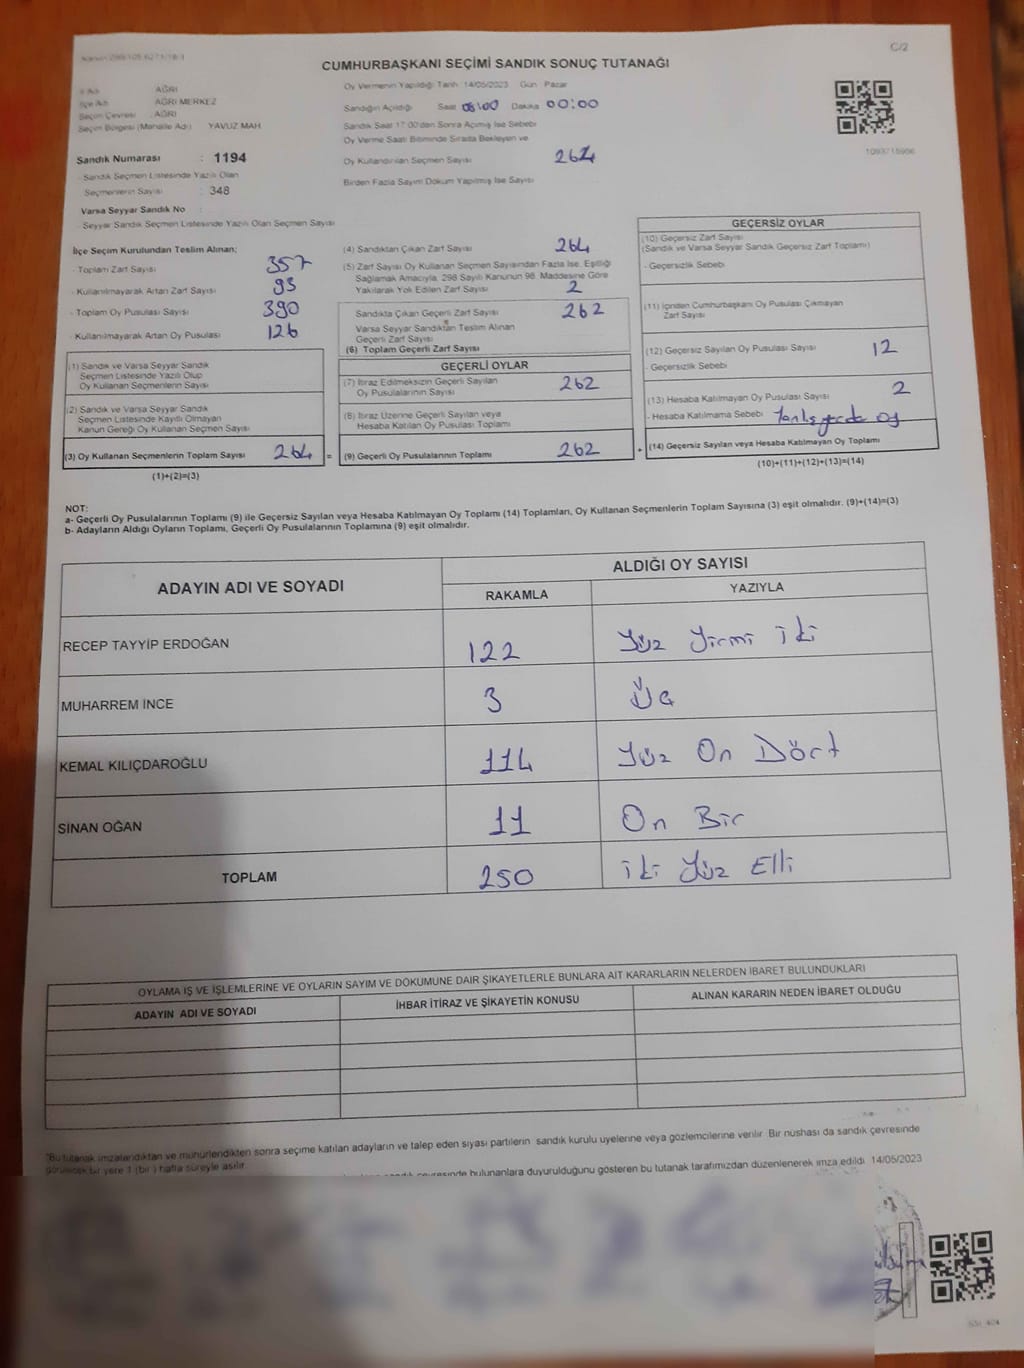 C/2
CUMHURBAŞKANI SEÇİMİ SANDIK SONUÇ TUTANAĞI
İl Adı : AĞRI
İlçe Adı : AĞRI MERKEZ
Seçim Çevresi : AĞRI
Seçim Bölgesi (Mahalle Adı) : YAVUZ MAH
Sandık Numarası : 1194
Sandık Seçmen Listesinde Yazılı Olan
Seçmenlerin Sayısı : 348
Varsa Seyyar Sandık No
Seyyar Sandık Seçmen Listesinde Yazılı Olan Seçmen Sayısı
Oy Vermenin Yapıldığı Tarih 14/05/2023 Gün Pazar
Sandığın Açıldığı Saat 08:00 Dakika 00:00
Sandık Saat 17:00'den Sonra Açılmış İse Sebebi
Oy Verme Saati Bitiminde Sırada Bekleyen ve
Oy Kullandırılan Seçmen Sayısı 264
Birden Fazla Sayım Döküm Yapılmış İse Sayısı
İlçe Seçim Kurulundan Teslim Alınan;
- Toplam Zarf Sayısı 357
- Kullanılmayarak Artan Zarf Sayısı 93
- Toplam Oy Pusulası Sayısı 390
- Kullanılmayarak Artan Oy Pusulası 126
(1) Sandık ve Varsa Seyyar Sandık
Seçmen Listesinde Yazılı Olup
Oy Kullanan Seçmenlerin Sayısı
(2) Sandık ve Varsa Seyyar Sandık
Seçmen Listesinde Kayıtlı Olmayan
Kanun Gereği Oy Kullanan Seçmen Sayısı
(3) Oy Kullanan Seçmenlerin Toplam Sayısı 264 =
(1)+(2)=(3)
(4) Sandıktan Çıkan Zarf Sayısı 264
(5) Zarf Sayısı Oy Kullanan Seçmen Sayısından Fazla İse, Eşitliği
Sağlamak Amacıyla, 298 Sayılı Kanunun 98. Maddesine Göre
Yakılarak Yok Edilen Zarf Sayısı 2
Sandıkta Çıkan Geçerli Zarf Sayısı 262
Varsa Seyyar Sandıktan Teslim Alınan
Geçerli Zarf Sayısı
(6) Toplam Geçerli Zarf Sayısı
GEÇERLİ OYLAR
(7) İtiraz Edilmeksizin Geçerli Sayılan
Oy Pusulalarının Sayısı 262
(8) İtiraz Üzerine Geçerli Sayılan veya
Hesaba Katılan Oy Pusulası Toplamı
(9) Geçerli Oy Pusulalarının Toplamı 262 +
GEÇERSİZ OYLAR
(10) Geçersiz Zarf Sayısı
(Sandık ve Varsa Seyyar Sandık Geçersiz Zarf Toplamı)
- Geçersizlik Sebebi
(11) İçinden Cumhurbaşkanı Oy Pusulası Çıkmayan
Zarf Sayısı
(12) Geçersiz Sayılan Oy Pusulası Sayısı 12
- Geçersizlik Sebebi
(13) Hesaba Katılmayan Oy Pusulası Sayısı 2
- Hesaba Katılmama Sebebi Yanlış yerde oy
(14) Geçersiz Sayılan veya Hesaba Katılmayan Oy Toplamı
(10)+(11)+(12)+(13)=(14)
NOT:
a- Geçerli Oy Pusulalarının Toplamı (9) ile Geçersiz Sayılan veya Hesaba Katılmayan Oy Toplamı (14) Toplamları, Oy Kullanan Seçmenlerin Toplam Sayısına (3) eşit olmalıdır. (9)+(14)=(3)
b- Adayların Aldığı Oyların Toplamı, Geçerli Oy Pusulalarının Toplamına (9) eşit olmalıdır.
ADAYIN ADI VE SOYADI
ALDIĞI OY SAYISI
RAKAMLA YAZIYLA
RECEP TAYYİP ERDOĞAN 122 Yüz Yirmi iki
MUHARREM İNCE 3 Üç
KEMAL KILIÇDAROĞLU 114 Yüz On Dört
SİNAN OĞAN 11 On Bir
TOPLAM 250 iki Yüz Elli
OYLAMA İŞ VE İŞLEMLERİNE VE OYLARIN SAYIM VE DÖKÜMÜNE DAİR ŞİKAYETLERLE BUNLARA AİT KARARLARIN NELERDEN İBARET BULUNDUKLARI
ADAYIN ADI VE SOYADI İHBAR İTİRAZ VE ŞİKAYETİN KONUSU ALINAN KARARIN NEDEN İBARET OLDUĞU
*Bu tutanak imzalandıktan ve mühürlendikten sonra seçime katılan adayların ve talep eden siyasi partilerin sandık kurulu üyelerine veya gözlemcilerine verilir. Bir nüshası da sandık çevresinde
görülecek bir yere 1 (bir) hafta süreyle asılır.
sandık çevresinde bulunanlara duyurulduğunu gösteren bu tutanak tarafımızdan düzenlenerek imza edildi. 14/05/2023